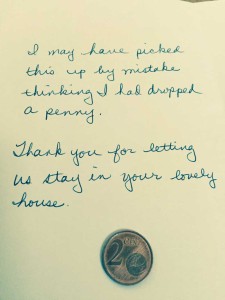 I may have picked
this up by mistake
thinking I had dropped
a penny.
Thank you for letting
us stay in your lovely
house.
2